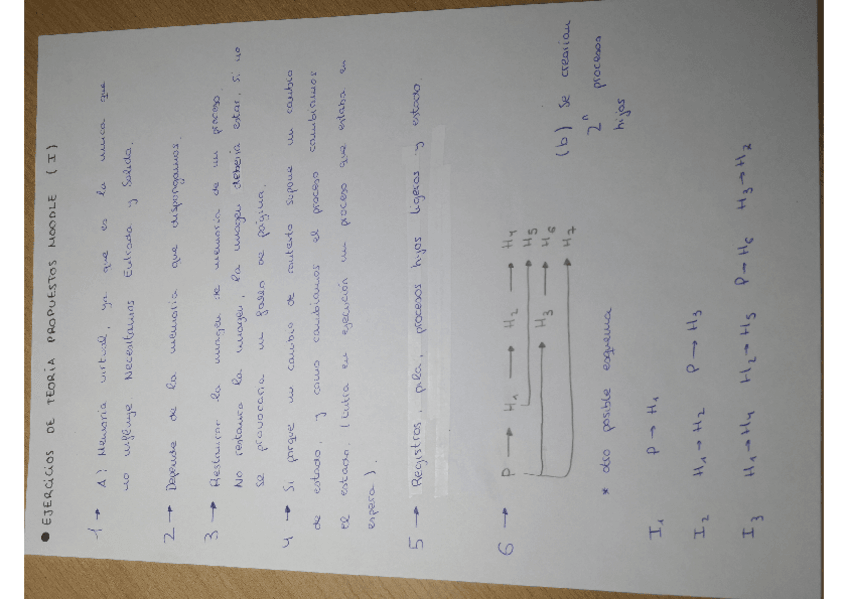 ● EJERCICIOS DE TEORÍA PROPUESTOS MOODLE (I)
1 → A) Memoria virtual, ya que es la única que
no influye Necesitamos Entrada y Salida.
2 → Depende de la memoria que dispongamos.
3 → Restaurar la imagen de memoria de un proceso.
No restaura la imagen, la imagen debería estar, si no
se provocaría un fallo de página.
4 → Si porque un cambio de contexto supone un cambio
de estado, y como cambiamos el proceso cambiamos
el estado. (Entra en ejecución un proceso que estaba en
espera).
5 → Registros, pila, procesos hijos ligeros y estado.
6 → P → H1 → H2 → H4
H5
H3 → H6
H7
(b) Se crearían
2^n procesos
hijos
* otro posible esquema
I1 P → H1
I2 H1 → H2 P → H3
I3 H1 → H4 H2 → H5 P → H6 H3 → H7